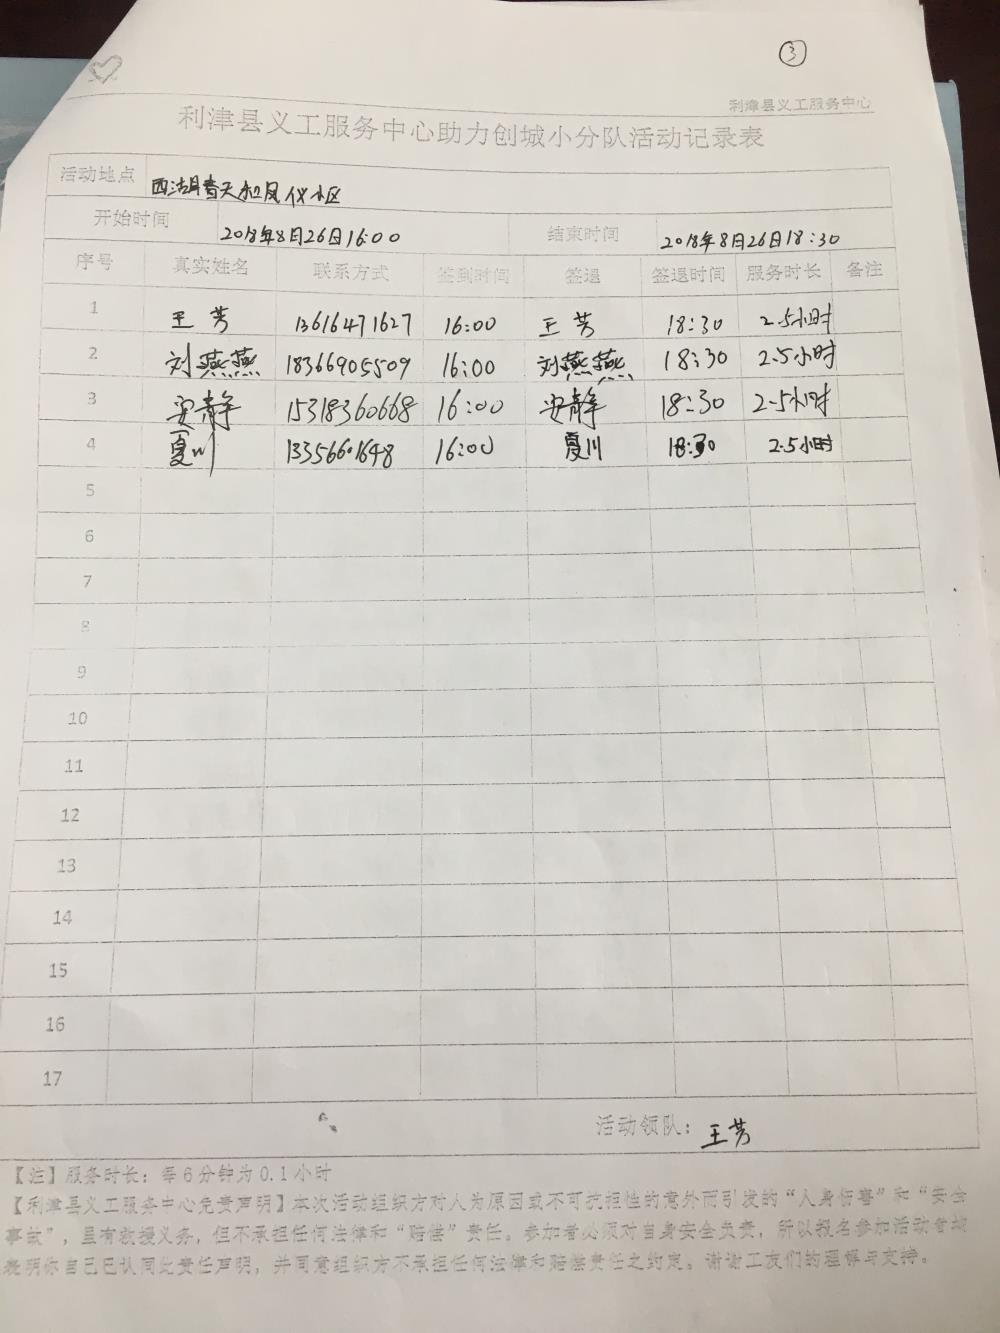 ③
利津县义工服务中心
利津县义工服务中心助力创城小分队活动记录表
活动地点 西湖春天和凤仪小区
开始时间 2018年8月26日16:00 结束时间 2018年8月26日18:30
序号 真实姓名 联系方式 签到时间 签退 签退时间 服务时长 备注
1 王芳 13616471627 16:00 王芳 18:30 2.5小时
2 刘燕燕 18366905509 16:00 刘燕燕 18:30 2.5小时
3 安静 15318360668 16:00 安静 18:30 2.5小时
4 夏川 13356601648 16:00 夏川 18:30 2.5小时
5
6
7
8
9
10
11
12
13
14
15
16
17
活动领队：王芳
【注】服务时长：每6分钟为0.1小时
【利津县义工服务中心免责声明】本次活动组织方对人为原因或不可抗拒性的意外而引发的“人身伤害”和“安全
事故”，虽有救援义务，但不承担任何法律和“赔偿”责任。参加者必须对自身安全负责，所以报名参加活动者均
表明你自己已认同此责任声明，并同意组织方不承担任何法律和赔偿责任之约定。谢谢工友们的理解与支持。